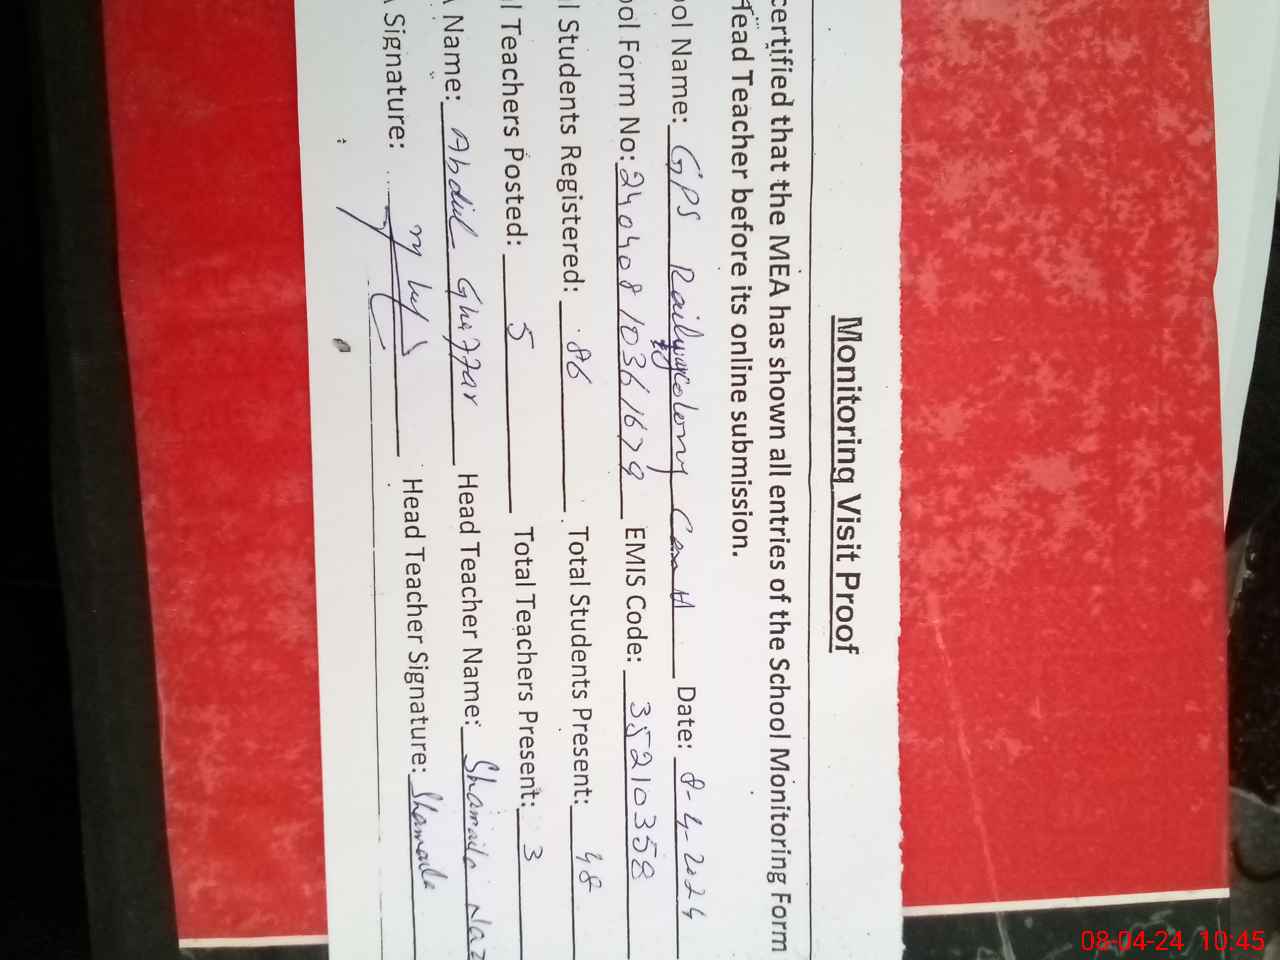 Monitoring Visit Proof
certified that the MEA has shown all entries of the School Monitoring Form
Head Teacher before its online submission.
ool Name: GPS Railway colony Cantt Date: 8-4-2024
ool Form No: 2404081036 1679 EMIS Code: 35210358
l Students Registered: 86 Total Students Present: 48
l Teachers Posted: 5 Total Teachers Present: 3
A Name: Abdul Ghaffar Head Teacher Name: Shamaila Naz
A Signature: Head Teacher Signature: Shamaila
08-04-24 10:45